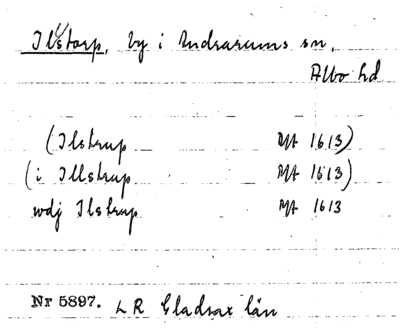 Ilstorp, by i Andrarums sn,
Albo hd
(Ilstrup RA 1613)
(i Illstrup RA 1613)
wdj Ilstrup RA 1613
Nr 5897. LR Gladsax län